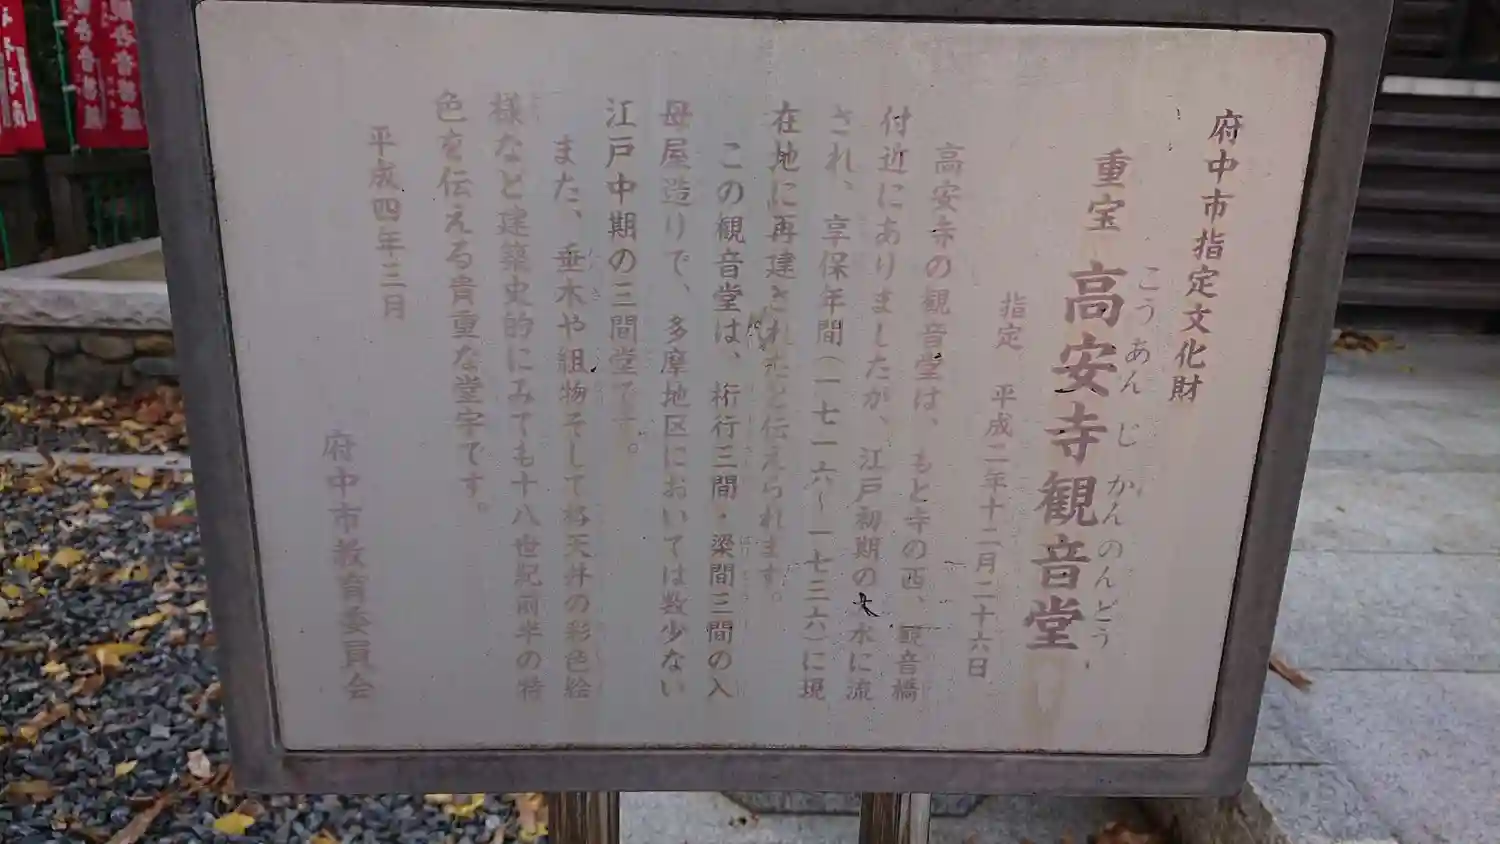 府中市指定文化財
重宝 高安寺観音堂
こうあん じ かんのんどう
指定 平成二年十二月二十六日
高安寺の観音堂は、もと寺の西、観音橋
付近にありましたが、江戸初期の大水に流
され、享保年間(一七一六~一七三六)に現
在地に再建されたと伝えられます。
この観音堂は、桁行三間・梁間三間の入
母屋造りで、多摩地区においては数少ない
江戸中期の三間堂です。
また、垂木や組物そして格天井の彩色絵
様など建築史的にみても十八世紀前半の特
色を伝える貴重な堂宇です。
平成四年三月
府中市教育委員会